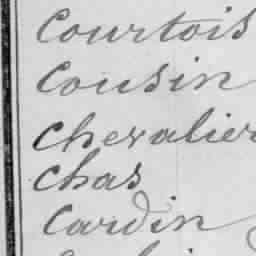 Courtois
Cousin
Chevalier
Chas
Cardin